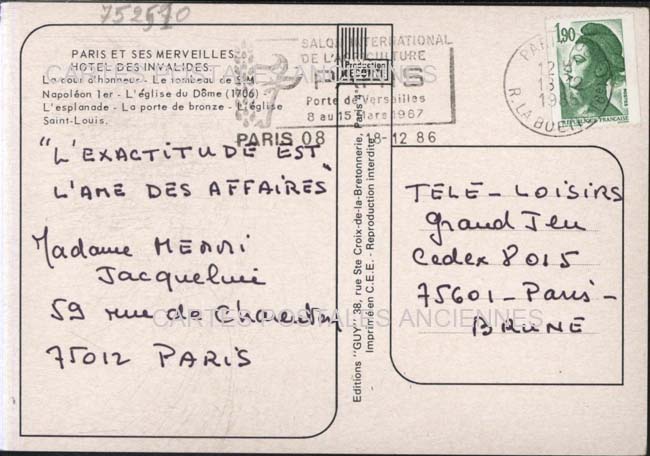 752510
PARIS ET SES MERVEILLES
HOTEL DES INVALIDES
La cour d'honneur - Le tombeau de SM
Napoléon 1er - L'église du Dôme (1706)
L'esplanade - La porte de bronze - L'église
Saint-Louis.
Production
LECONTE
SALON INTERNATIONAL
DE L'AGRICULTURE
PARIS
Porte de Versailles
8 au 15 Mars 1987
PARIS 08 18-12 86
1,90
REPUBLIQUE FRANÇAISE
PARIS
R. LA BOETIE
CARTES POSTALES ANCIENNES
"L'EXACTITUDE EST
L'AME DES AFFAIRES"
Madame HENRI
Jacqueline
59 rue de Charenton
75012 PARIS
Editions "GUY", 38, rue Ste Croix-de-la-Bretonnerie, Paris 4e
Imprimé en C.E.E. - Reproduction interdite
TELE-LOISIRS
Grand Jeu
Cedex 8015
75601-Paris-
BRUNE
CARTES POSTALES ANCIENNES